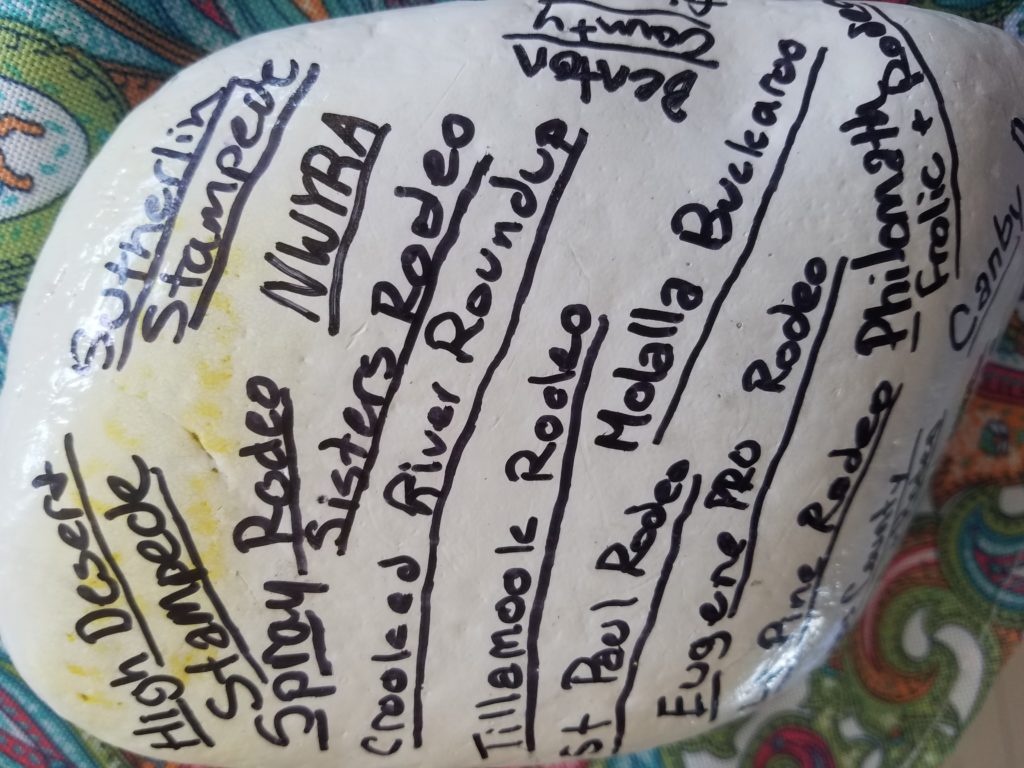 High Desert
Stampede
Sutherlin
Stampede
Spray Rodeo
NWYRA
Sisters Rodeo
Crooked River Roundup
Tillamook Rodeo
St Paul Rodeo
Molalla Buckaroo
Eugene PRO Rodeo
Pine Rodeo
Philomath
Frolic +
Canby
County